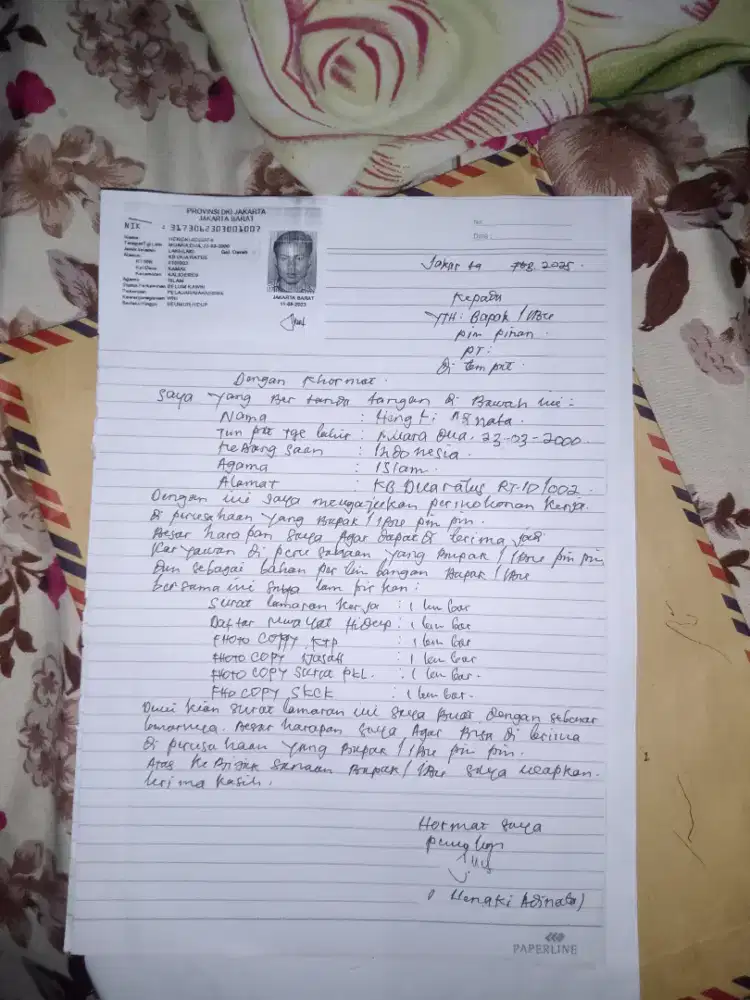 PROVINSI DKI JAKARTA
JAKARTA BARAT
NIK : 3173062303001007
Nama
Tempat/Tgl Lahir : MUARA DUA, 23-03-2000
Jenis Kelamin : LAKI-LAKI Gol. Darah : -
Alamat : KB DUA RATUS
RT/RW
Kel/Desa : KAMAL
Kecamatan : KALIDERES
Agama : ISLAM
Status Perkawinan : BELUM KAWIN
Pekerjaan : PELAJAR/MAHASISWA
Kewarganegaraan : WNI
Berlaku Hingga : SEUMUR HIDUP
JAKARTA BARAT
No.
Date :
Jakarta 2025
Kepada
YTH : Bapak / Ibu
pim pinan
PT :
Di tempat
Dengan Khormat.
Saya yang Ber tanda tangan di Bawah ini :
Nama : Hengki Adinata.
Tem pat tge lahir : Muara Dua, 23-03-2000.
Kebang saan : Indonesia.
Agama : Islam.
Alamat : KB Dua ratus RT.10/002.
Dengan ini saya mengajukan permohonan kerja.
Di perusahaan yang Bapak / Ibu pim pin.
Besar harapan saya Agar dapat di terima jadi
Karyawan di peru sahaan yang Bapak / Ibu pim pin
Dan sebagai bahan per tim bangan Bapak / Ibu
bersama ini saya lam pir kan :
Surat lamaran kerja : 1 lem bar
Daftar Riwayat Hidup : 1 lem bar
FHOTO COPPY KTP : 1 lem bar
FHOTO COPY Ijasah : 1 lem bar.
FHOTO COPY Surat PKL. : 1 lem bar.
FHO COPY SKCK : 1 lem bar.
Demi kian surat lamaran ini saya Buat dengan sebenar
benarnya. Besar harapan saya Agar Bisa di terima
di perusahaan yang Bapak / Ibu pim pin.
Atas Ke Bijak sanaan Bapak / Ibu saya ucapkan.
terima kasih.
Hormat saya
( Hengki Adinata)
PAPERLINE